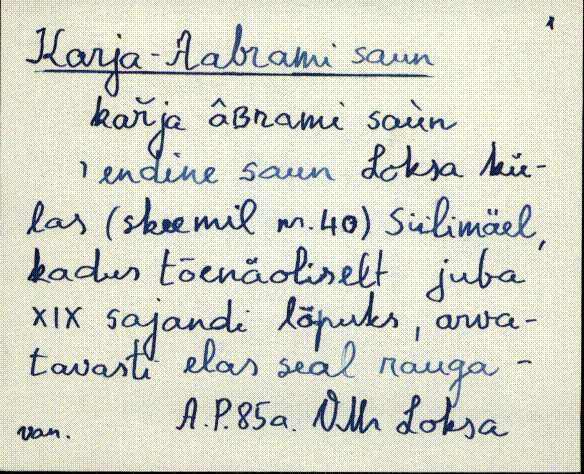 Karja-Aabrami saun
kařja âBrami saùn
' endine saun Loksa kü-
las (skeemil nr. 40) Siilimäel,
kadus tõenäoliselt juba
XIX sajandi lõpuks, arva-
tavasti elas seal rauga-
A.P. 85a. VMr Loksa
van.